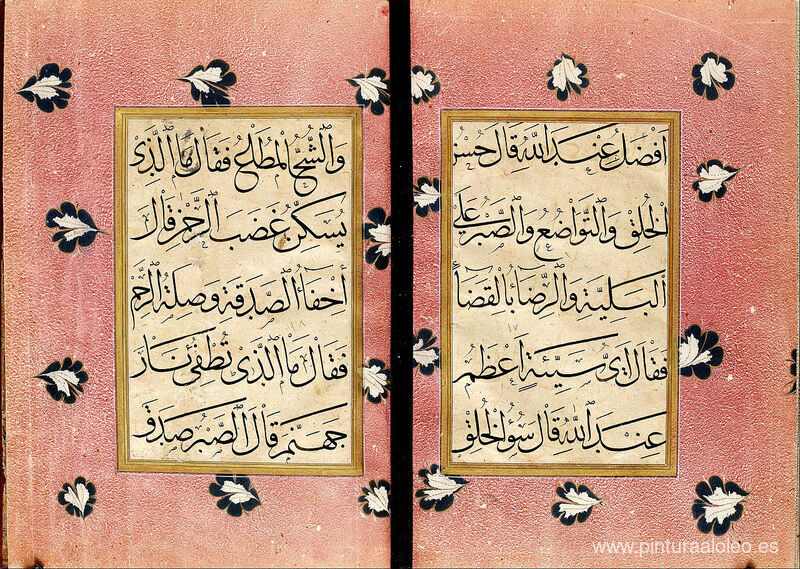 افضل عند الله قال حسن
الخلق والتواضع والصبر على
البلية والرضا بالقضا
فقال اى سيئة اعظم
عند الله قال سؤ الخلق
والشح المطاع فقال ما الذى
يسكن غضب الرحمن قال
أخفا الصدقة وصلة الرحم
فقال ما الذى تطفئ نار
جهنم قال الصبر صدق
www.pinturaaloleo.es